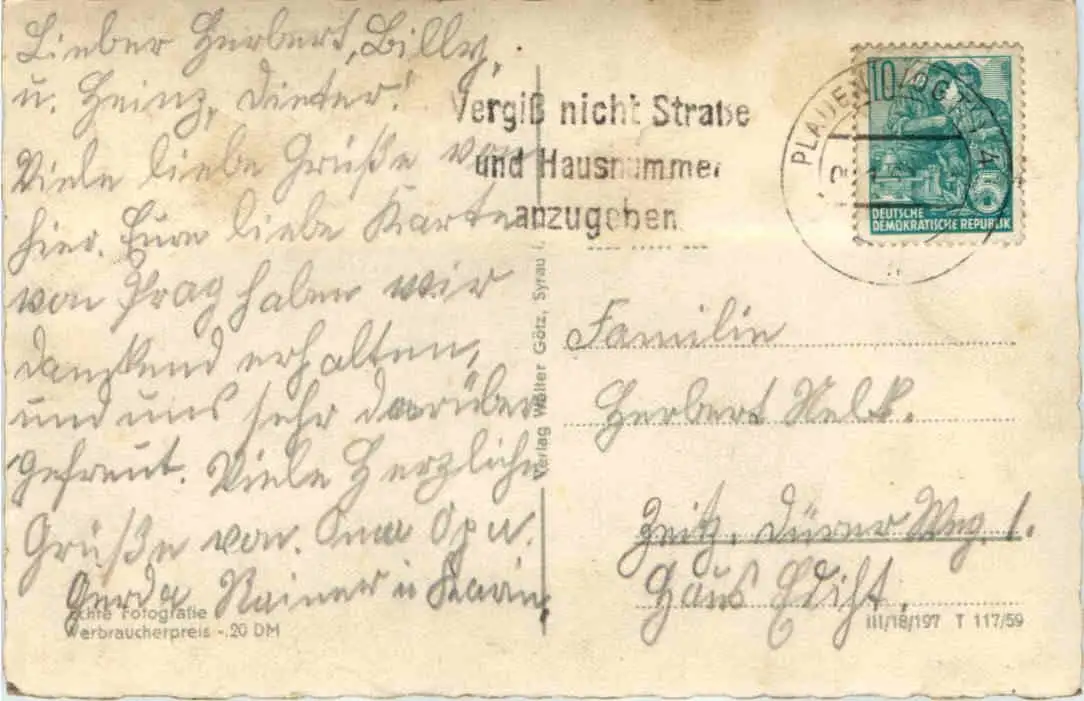 Lieber Herbert, Billy,
u. Heinz, Dieter!
Viele liebe Grüße von
hier. Eure liebe Karte
von Prag haben wir
dankend erhalten,
und uns sehr darüber
gefreut. Viele Herzliche
Grüße von. Oma Opa u.
Gerda Rainer u Karin,
Echte Fotografie
Verbraucherpreis -.20 DM
Verlag Walter Götz, Syrau i.
Vergiß nicht Straße
und Hausnummer
anzugeben
PLAUEN (VOGTL) 4
10
5
DEUTSCHE
DEMOKRATISCHE REPUBLIK
Familie
Herbert
Zeitz, Dürer Weg. 1.
Haus
III/18/197 T 117/59